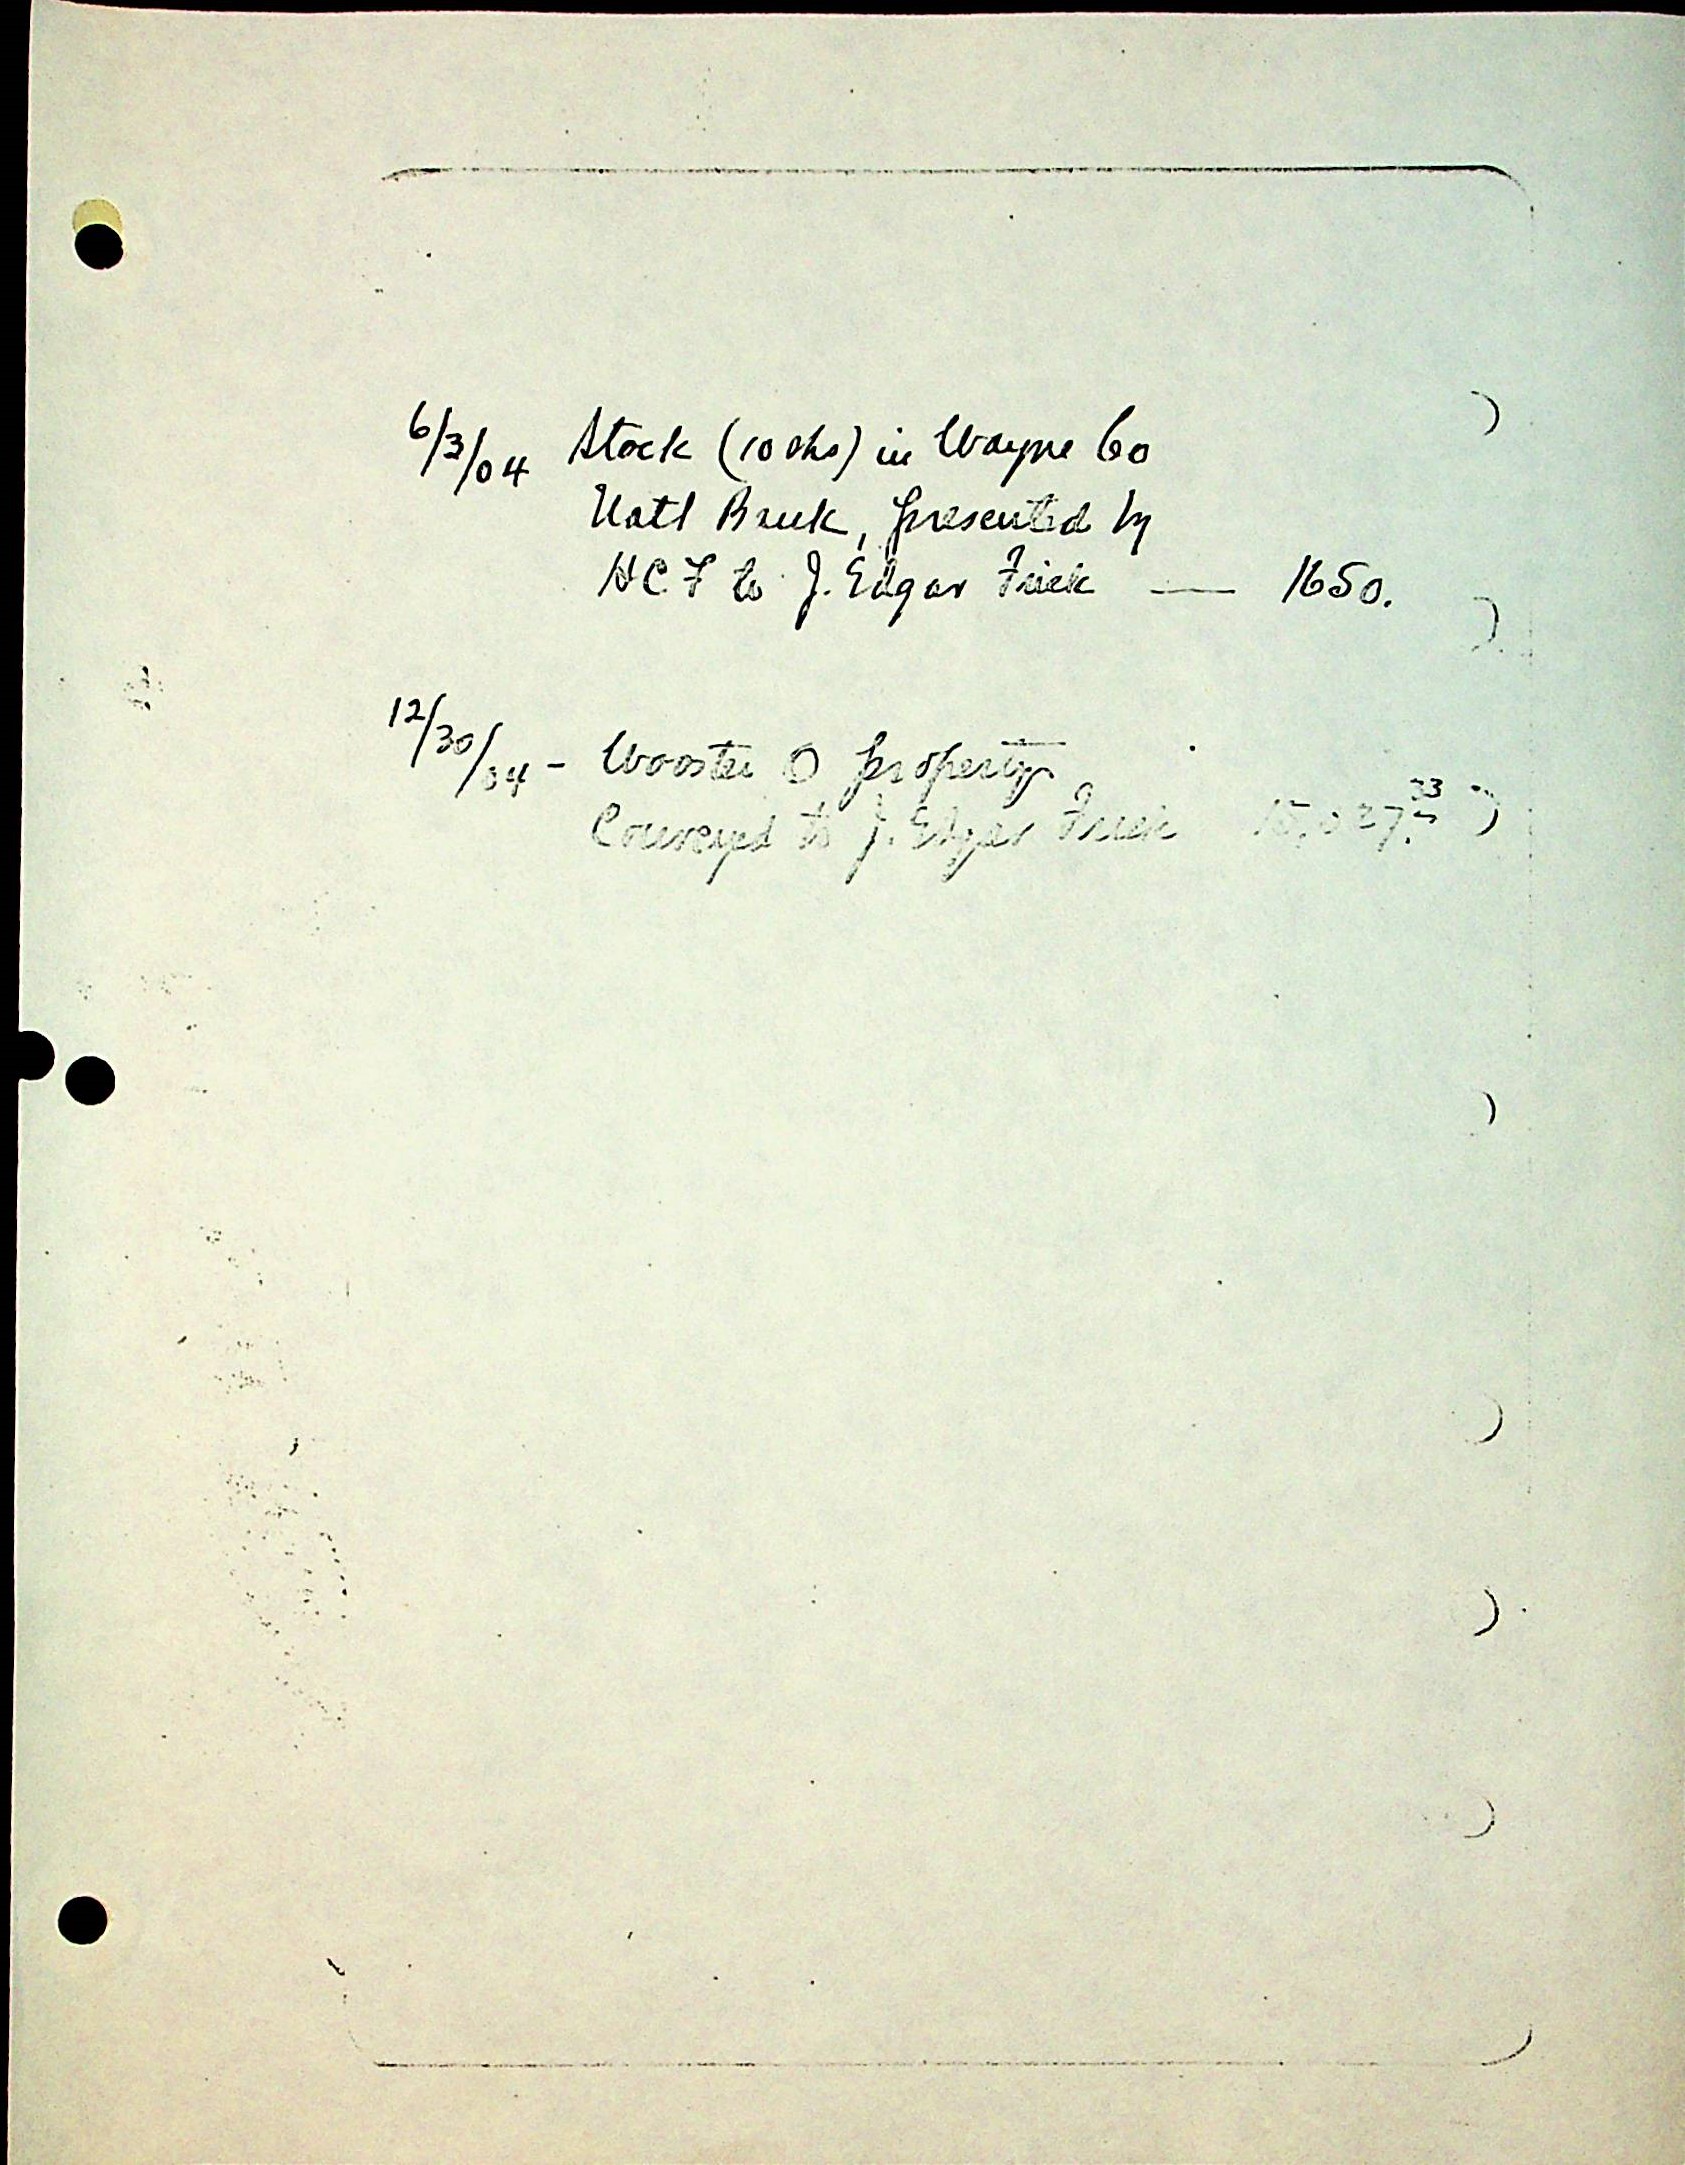 6/3/04 Stock (10 shs) in Wayne Co
Natl Bank, presented by
HCF to J. Edgar Frick — 1650.
12/30/04 - Wooster O property
Conveyed to J. Edgar Frick